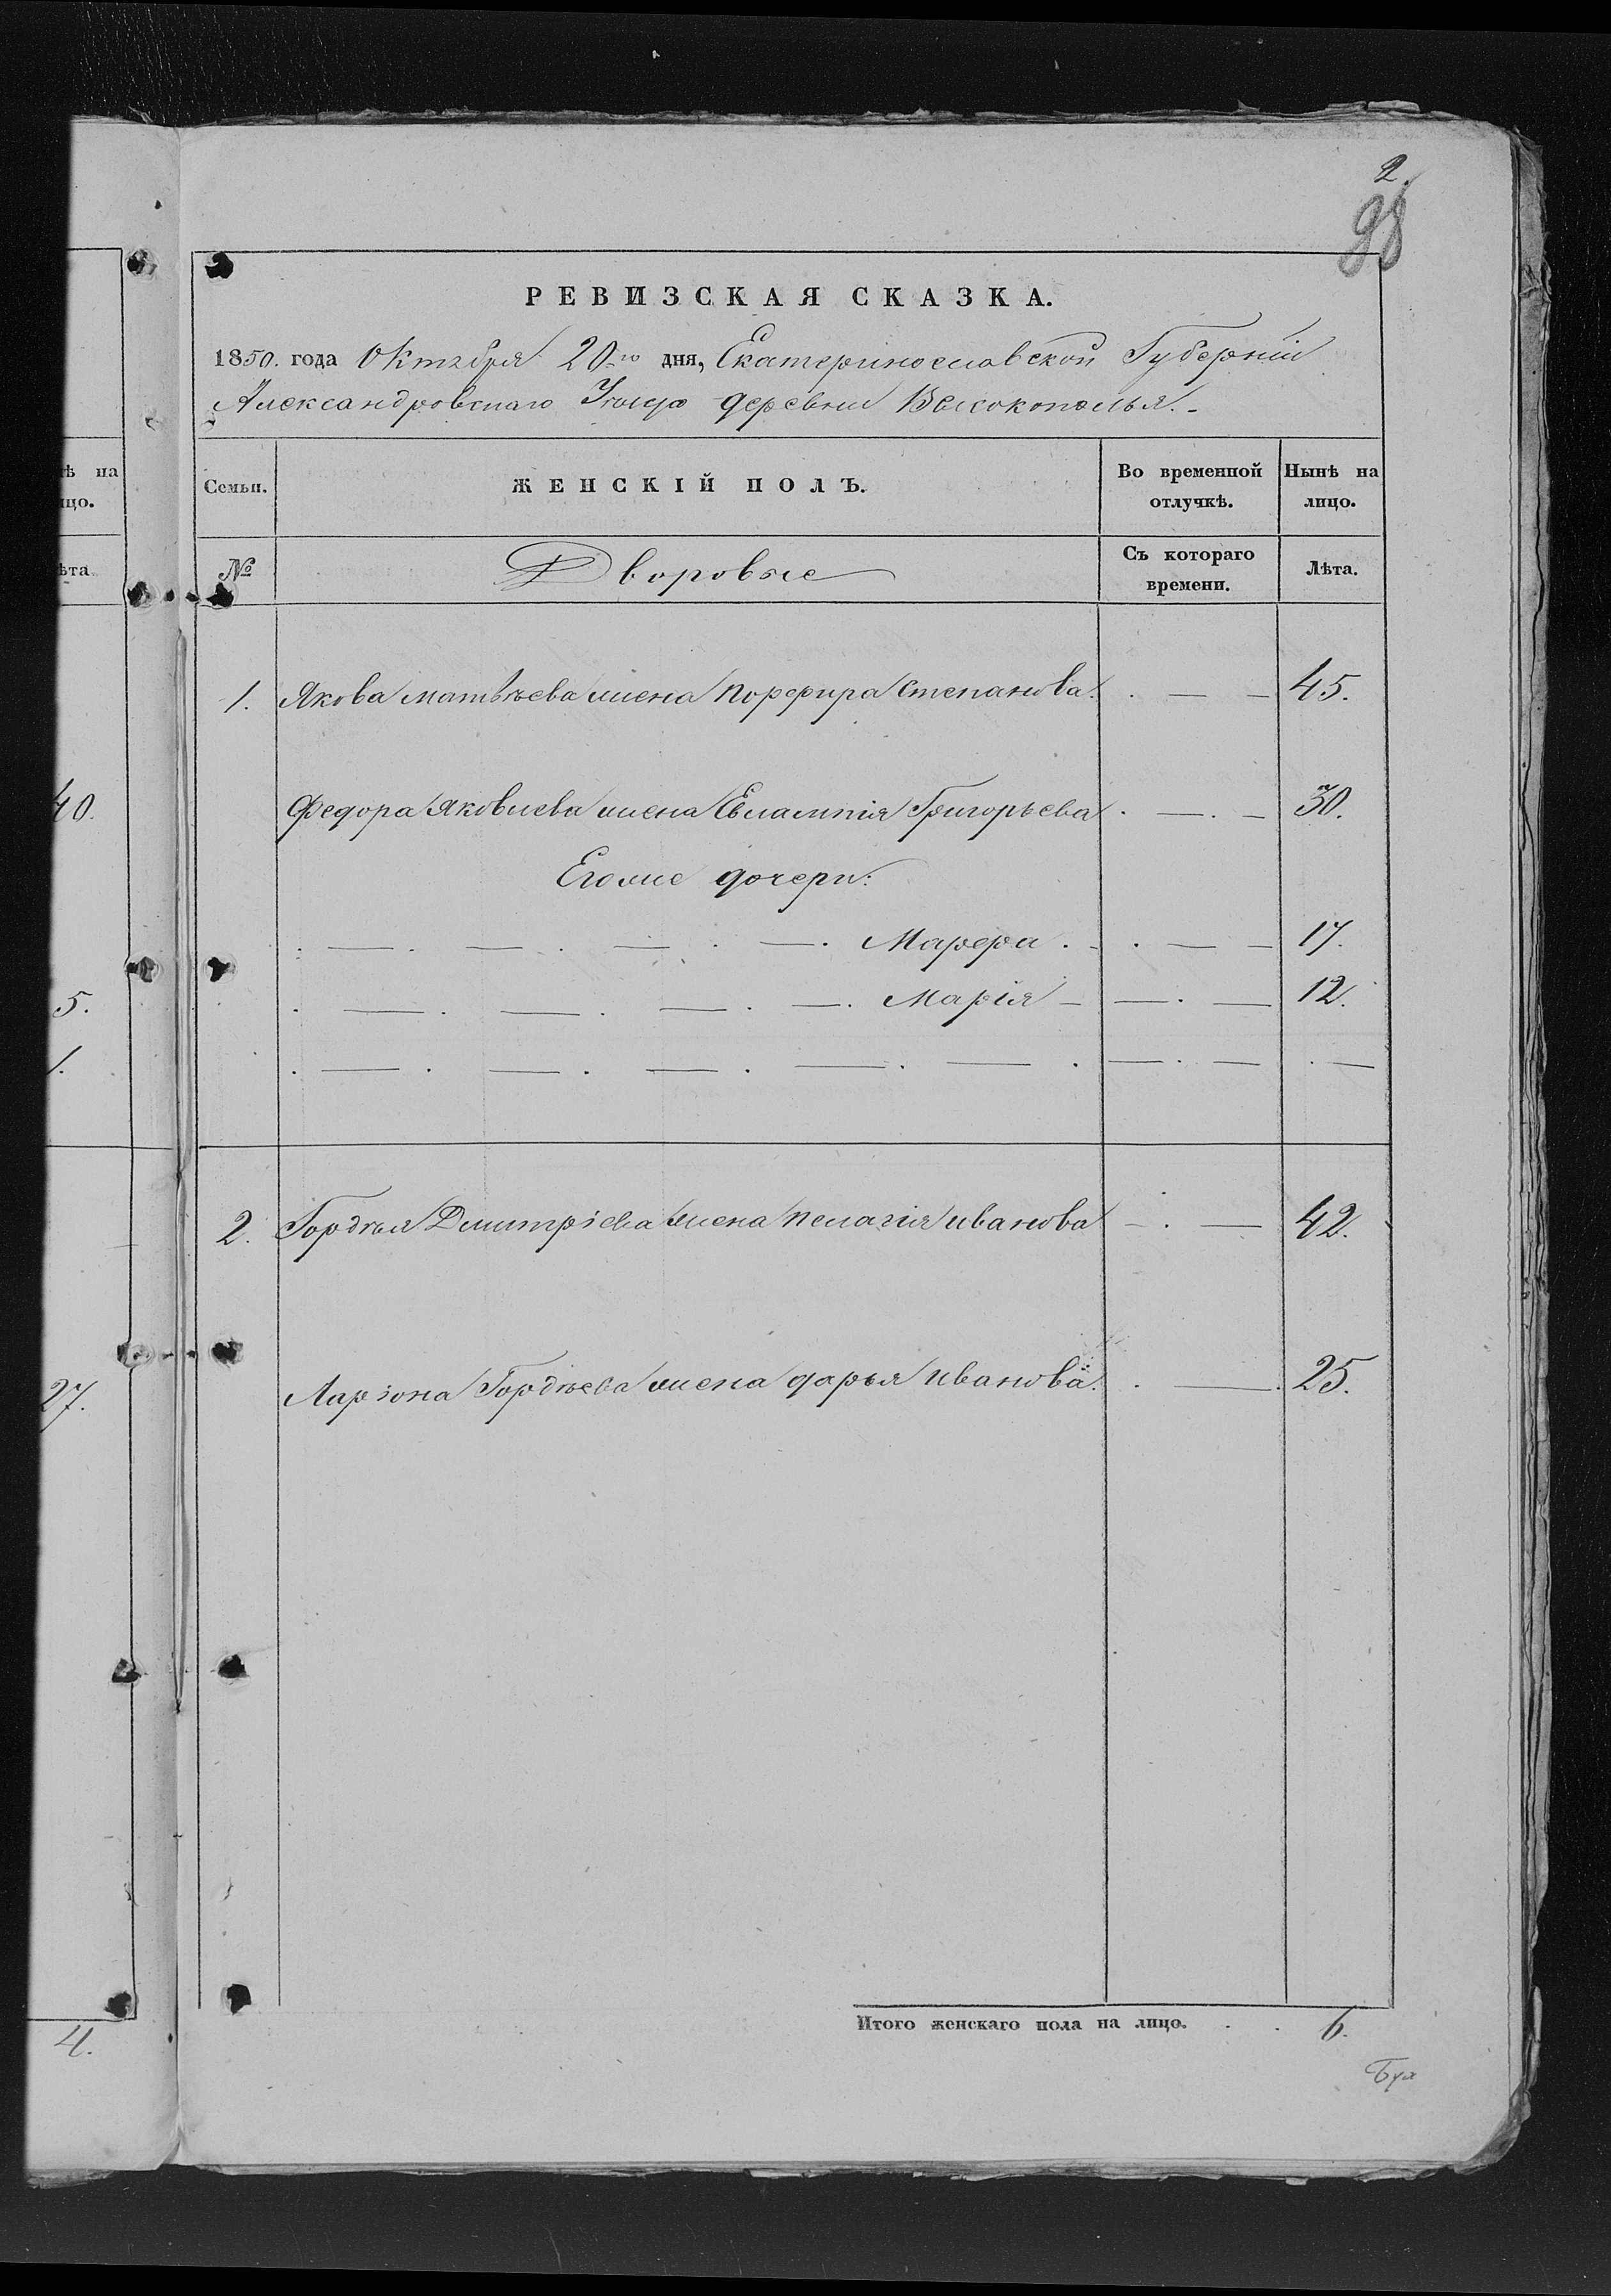 2.
98
РЕВИЗСКАЯ СКАЗКА.
1850. года Октября 20-го дня, Екатеринославской Губерніи
Александровскаго Уѣзда деревни Высокополья.-
ѣ на
Семьи.
ЖЕНСКІЙ ПОЛЪ.
Во временной
отлучкѣ.
Нынѣ на
лицо.
ицо.
ѣта
№
Дворовые
Съ котораго
времени.
Лѣта.
1. Якова Матвѣева жена Порфира Степанова. 45.
40.
Федора Яковлева жена Евлампія Григорьева 30.
Егоже дочери:
Марфа 17.
5.
Марія 12.
1.
2. Гордѣя Дмитріева жена Пелагія Иванова 42.
27.
Ларіона Гордѣева жена Дарья Иванова. 25.
Итого женскаго пола на лицо. 6.
4.